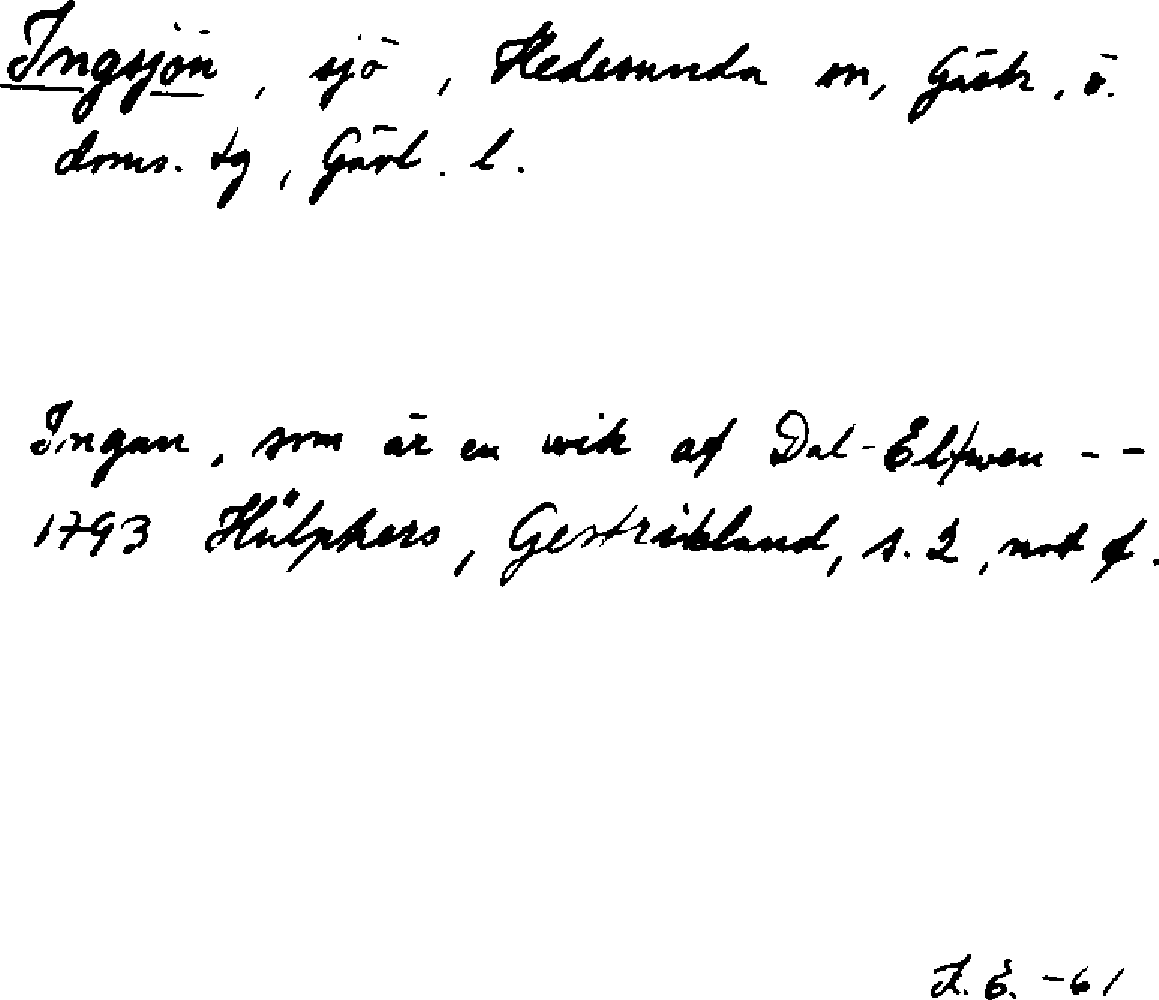 Ingsjön, sjö, Hedesunda sn, Gästr. ö.
doms. tg, Gävl. l.
Ingan, som är en wik af Dal-Elfwen - -
1793 Hülphers, Gestrikland, s. 2, not f.
-61